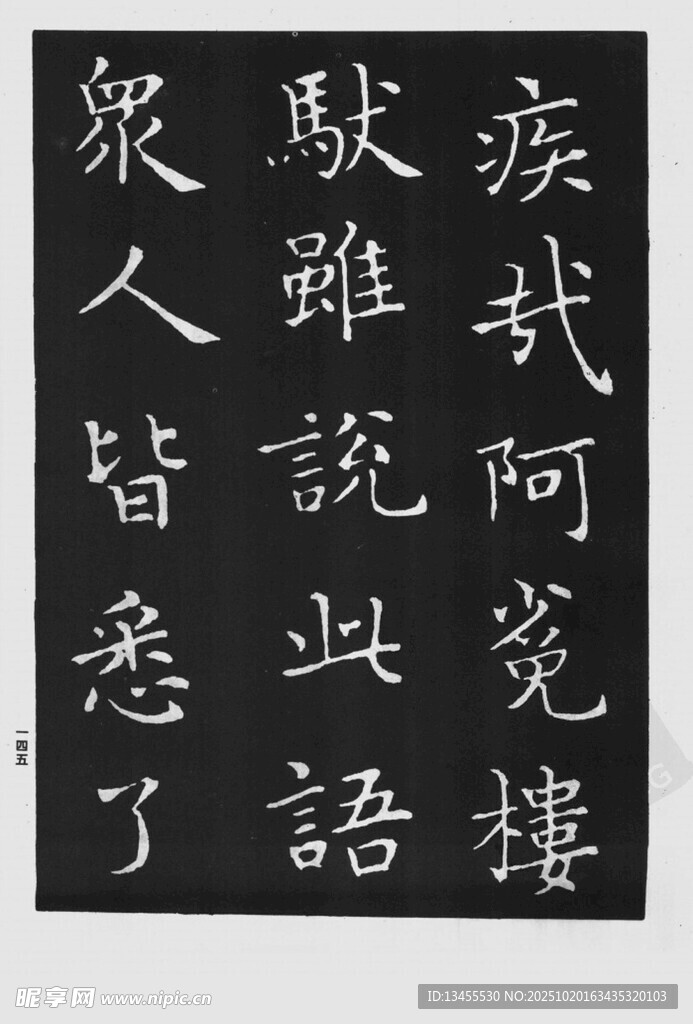 疾哉阿㝹樓
馱雖說此語
眾人皆悉了
一四五
昵享网 www.nipic.cn
ID:13455530 NO:20251020163435320103